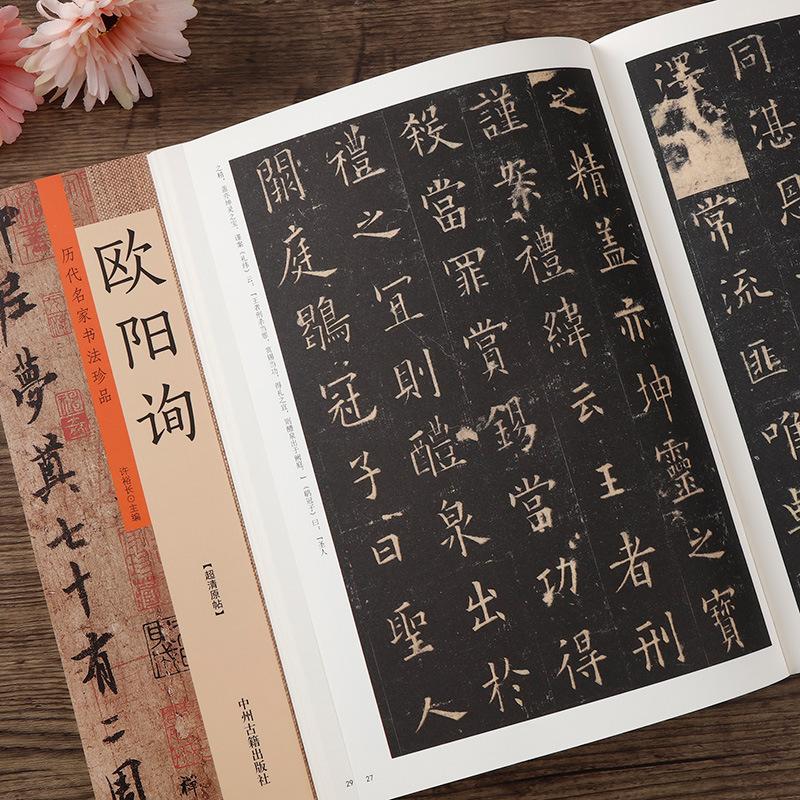 欧阳询
历代名家书法珍品
许裕长⊙主编
【超清原帖】
中州古籍出版社
尼夢奠七十有二周
同湛恩
澤常流匪唯
之精蓋亦坤靈之寶
謹案禮緯云王者刑
殺當罪賞錫當功得
禮之宜則醴泉出於
闕庭鶡冠子曰聖人
之精，盖亦坤灵之宝。谨案《礼纬》云：「王者刑杀当罪，赏锡当功，得礼之宜，则醴泉出于阙庭。」《鹖冠子》曰：「圣人
29 27